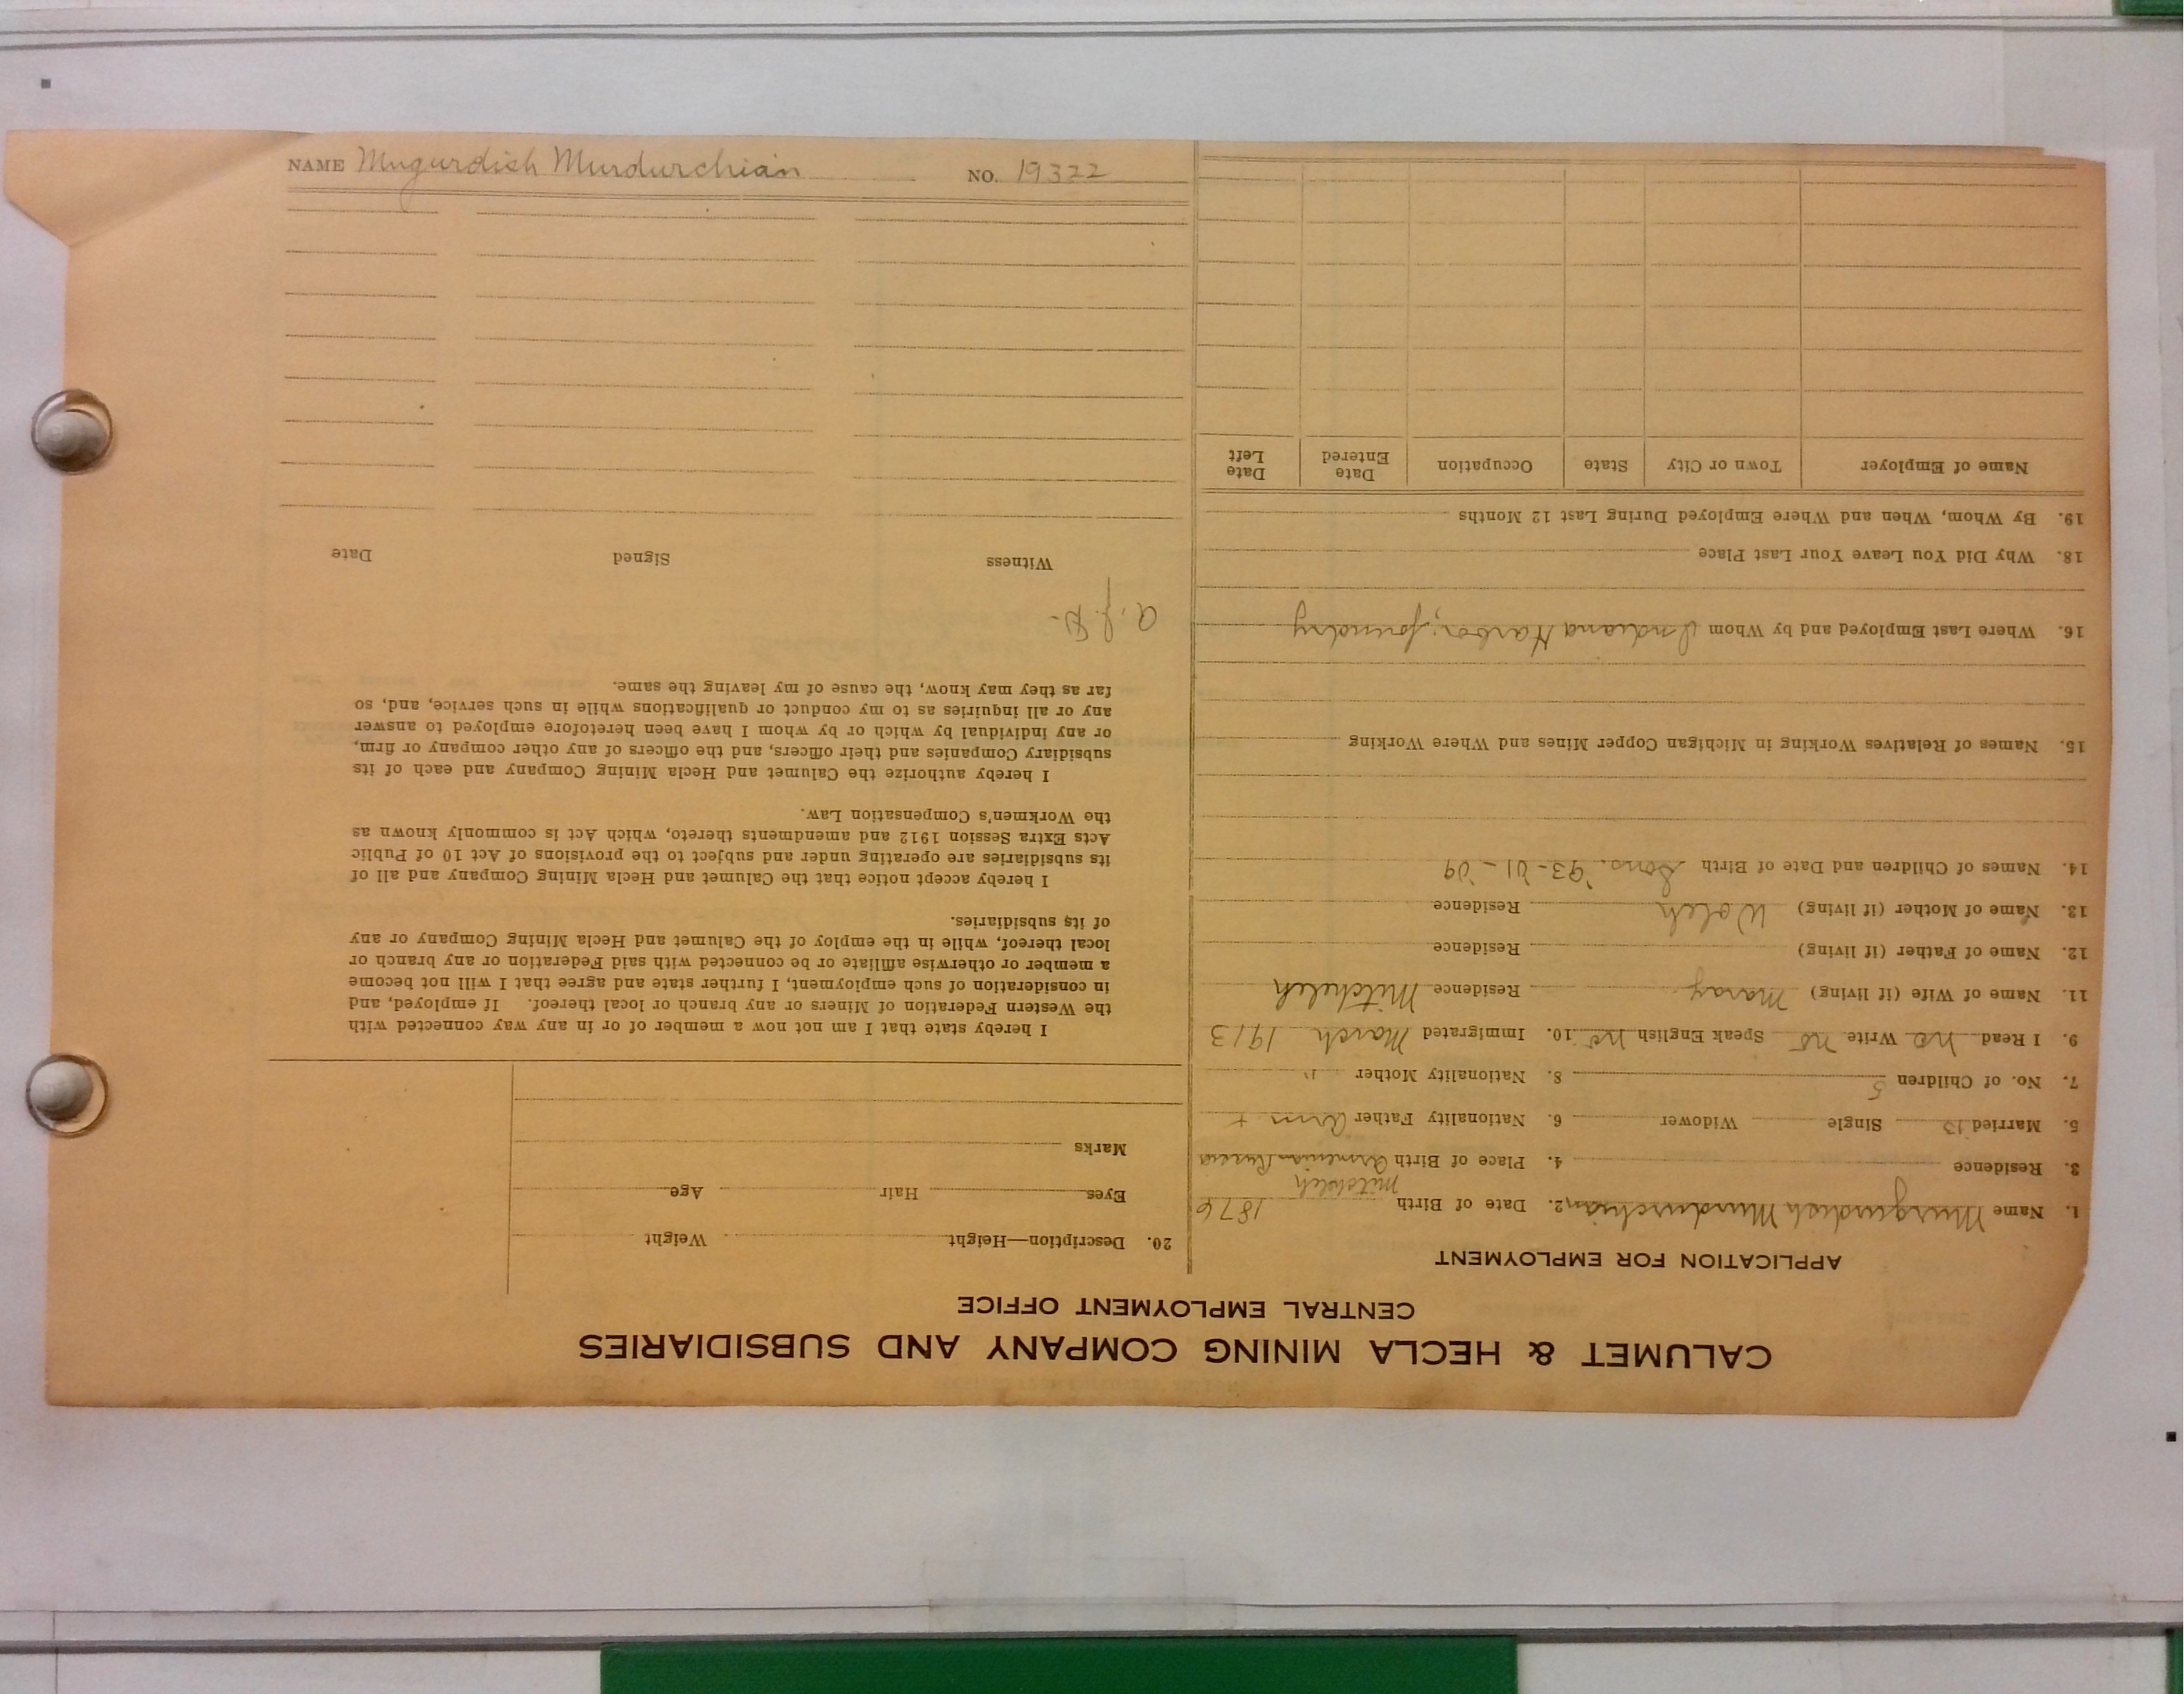 NAME Mugurdish Murdurchian NO. 19322
CALUMET & HECLA MINING COMPANY AND SUBSIDIARIES
CENTRAL EMPLOYMENT OFFICE
APPLICATION FOR EMPLOYMENT
1. Name Murgurdish Murdurchian 2. Date of Birth 1876
3. Residence 4. Place of Birth Armenian Russia
5. Married 13 Single Widower 6. Nationality Father Arm +
7. No. of Children 5 8. Nationality Mother "
9. I Read no Write no Speak English no 10. Immigrated March 1913
11. Name of Wife (if living) Maray Residence Mitchleh
12. Name of Father (if living) Residence
13. Name of Mother (if living) Woleh Residence
14. Names of Children and Date of Birth Sons. '93-'01-'09
15. Names of Relatives Working in Michigan Copper Mines and Where Working
16. Where Last Employed and by Whom Indiana Harbor; foundry
18. Why Did You Leave Your Last Place
19. By Whom, When and Where Employed During Last 12 Months
Name of Employer Town or City State Occupation Date Entered Date Left
20. Description—Height Weight
Eyes Hair Age
Marks
I hereby state that I am not now a member of or in any way connected with
the Western Federation of Miners or any branch or local thereof. If employed, and
in consideration of such employment, I further state and agree that I will not become
a member or otherwise affiliate or be connected with said Federation or any branch or
local thereof, while in the employ of the Calumet and Hecla Mining Company or any
of its subsidiaries.
I hereby accept notice that the Calumet and Hecla Mining Company and all of
its subsidiaries are operating under and subject to the provisions of Act 10 of Public
Acts Extra Session 1912 and amendments thereto, which Act is commonly known as
the Workmen's Compensation Law.
I hereby authorize the Calumet and Hecla Mining Company and each of its
subsidiary Companies and their officers, and the officers of any other company or firm,
or any individual by which or by whom I have been heretofore employed to answer
any or all inquiries as to my conduct or qualifications while in such service, and, so
far as they may know, the cause of my leaving the same.
Witness Signed Date